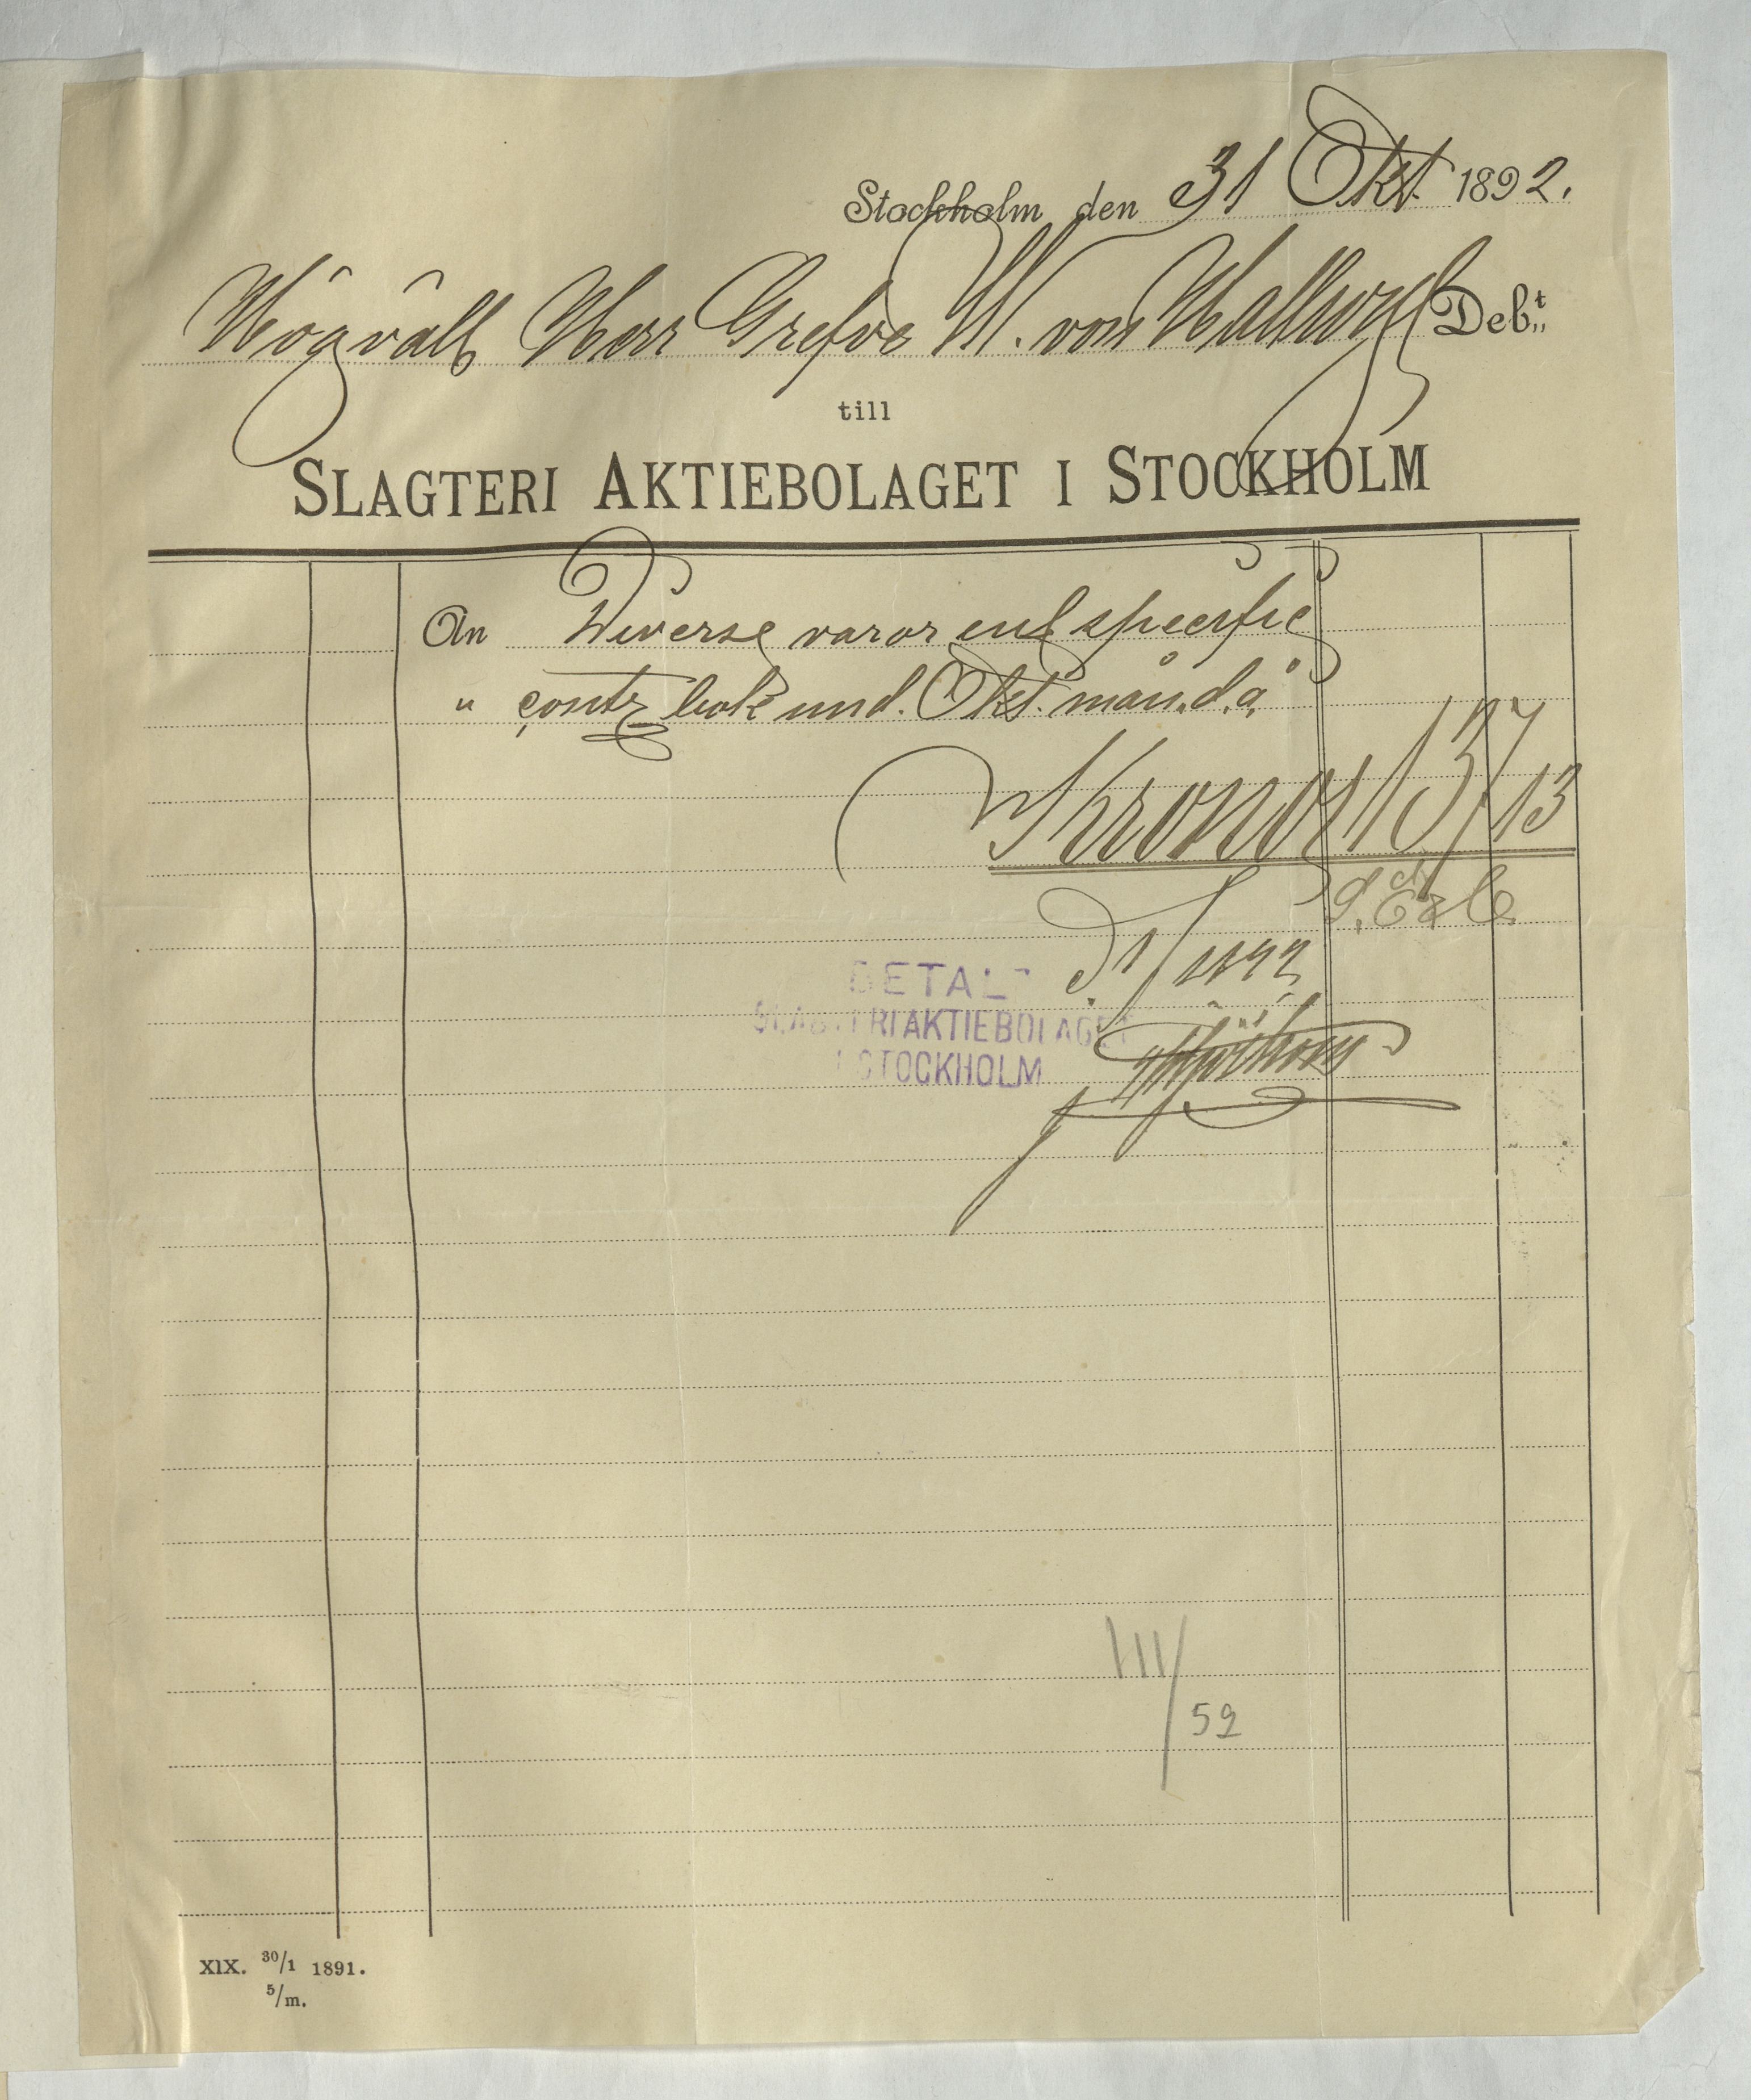 Stockholm den 31 Okt. 1892.
Högvälb Herr Grefve W. von Hallwyl Deb:t
till
SLAGTERI AKTIEBOLAGET I STOCKHOLM
An Diverse varor enl specifie
" contr bok und. Okt. mån. d.å.
Kronor 137 13
BETALT
SLAGTERIAKTIEBOLAGET
I STOCKHOLM
III/52
XIX. 30/1 1891.
5/m.